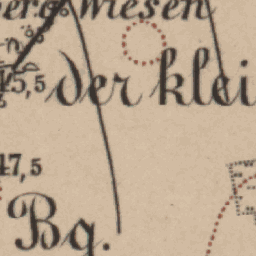 wiesen
45,5 der klei
47,5
Bg.